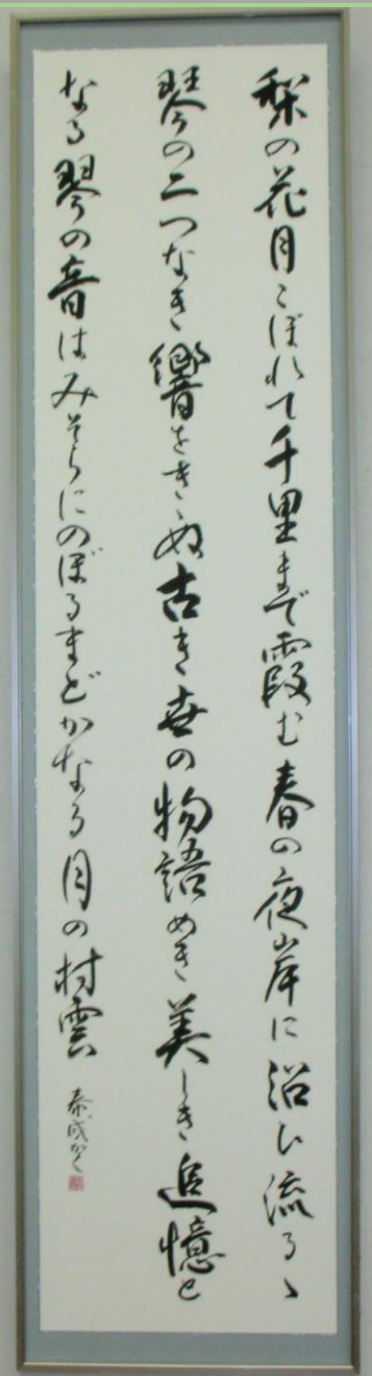 梨の花月こぼれて千里まで霞む春の夜岸に沿ひ流るゝ
琴の二つなき響をきゝぬ古き世の物語めき美しき追憶と
なる琴の音はみそらにのぼるまどかなる月の村雲
泰成かく